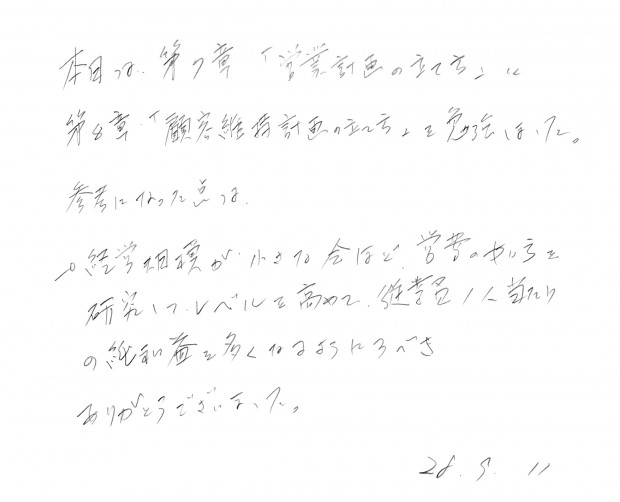 本日は、第7章「営業計画の立て方」と
第8章「顧客維持計画の立て方」を勉強しました。
参考になった点は、
○経営規模が小さな会社ほど、営業のやり方を
研究して、レベルを高めて、従業員1人当たり
の純利益を多くなるようにするべき
ありがとうございました。
28. 9. 11